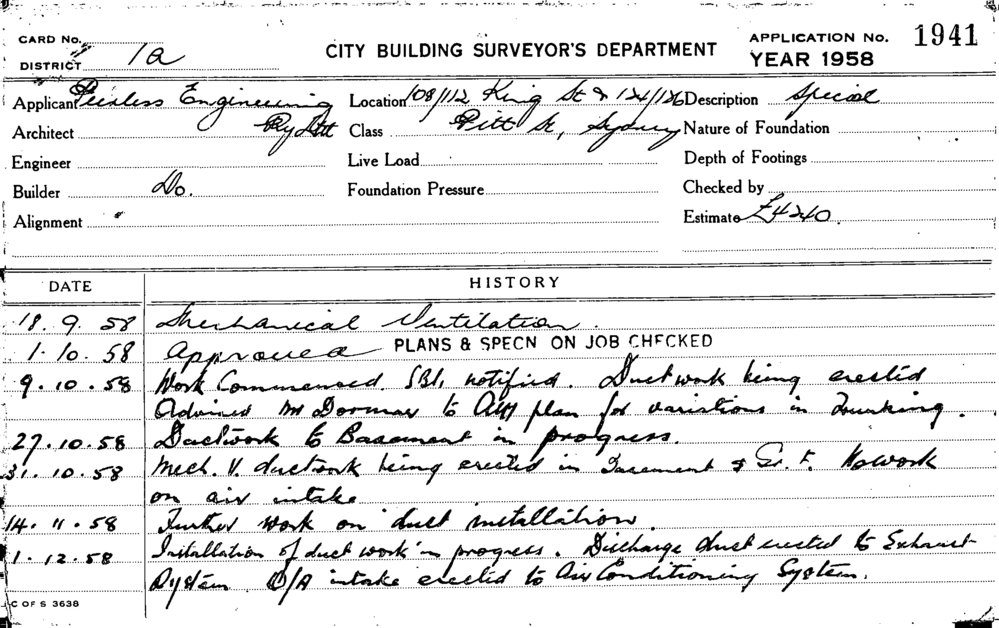 CARD No.
DISTRICT 1a
CITY BUILDING SURVEYOR'S DEPARTMENT
APPLICATION No. 1941
YEAR 1958
Applicant Peerless Engineering Location 108/112 King St & 124/126 Description Special
Pty Ltd
Architect Class Pitt St, Sydney Nature of Foundation
Engineer Live Load Depth of Footings
Builder Do. Foundation Pressure Checked by
Alignment Estimate £4240
DATE HISTORY
18. 9. 58 Mechanical Ventilation.
1. 10. 58 Approved PLANS & SPECN ON JOB CHECKED
9. 10. 58 Work Commenced. SBI, notified. Ductwork being erected
Advised Mr to plan for variations in Trunking.
27. 10. 58 Ductwork to Basement in progress.
31. 10. 58 Mech. V. ductwork being erected in Basement & Gr. F. No work
on air intake
14. 11. 58 Further work on duct installation.
1. 12. 58 Installation of duct work in progress. Discharge duct erected to Exhaust
System. O/A intake erected to Air Conditioning System.
C OF S 3638